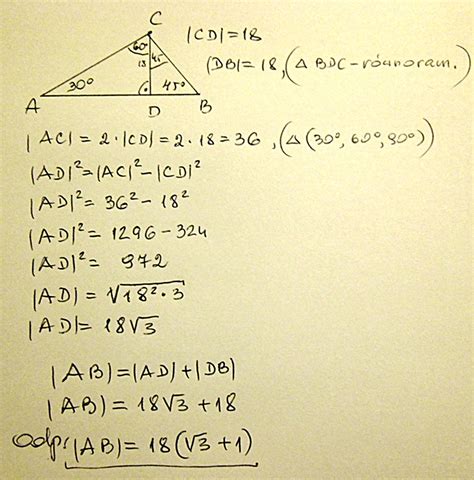 C
60° 45°
18
30° 45°
A D B
|CD|=18
|DB|=18, (△ BDC-równoram.)
|AC|=2·|CD|=2·18=36, (△(30°,60°,90°))
|AD|²=|AC|²-|CD|²
|AD|²=36²-18²
|AD|²=1296-324
|AD|²= 972
|AD|=√18²·3
|AD|=18√3
|AB|=|AD|+|DB|
|AB|=18√3+18
Odp: |AB|=18(√3+1)